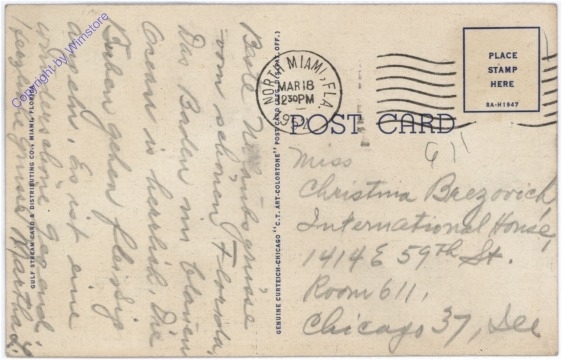 Beste Urlaubsgrüsse
vom schönen Florida,
Das Baden im blauen
Ocean is herrlich. Die
Buben gehen fleissig
angeln. Es ist eine
wunderschöne Gegend
Herzliche Grüsse Martha
GULF STREAM CARD & DISTRIBUTING CO., MIAMI, FLORIDA
Copyright by Wimstore
GENUINE CURTEICH-CHICAGO "C.T. ART-COLORTONE" POST CARD (REG. U.S. PAT. OFF.)
NORTH MIAMI, FLA.
MAR 18
1230PM
POST CARD
PLACE
STAMP
HERE
8A-H1947
611
Miss
Christina Brezovich,
International House,
1414 E 59th St.
Room 611,
Chicago 37, Ill